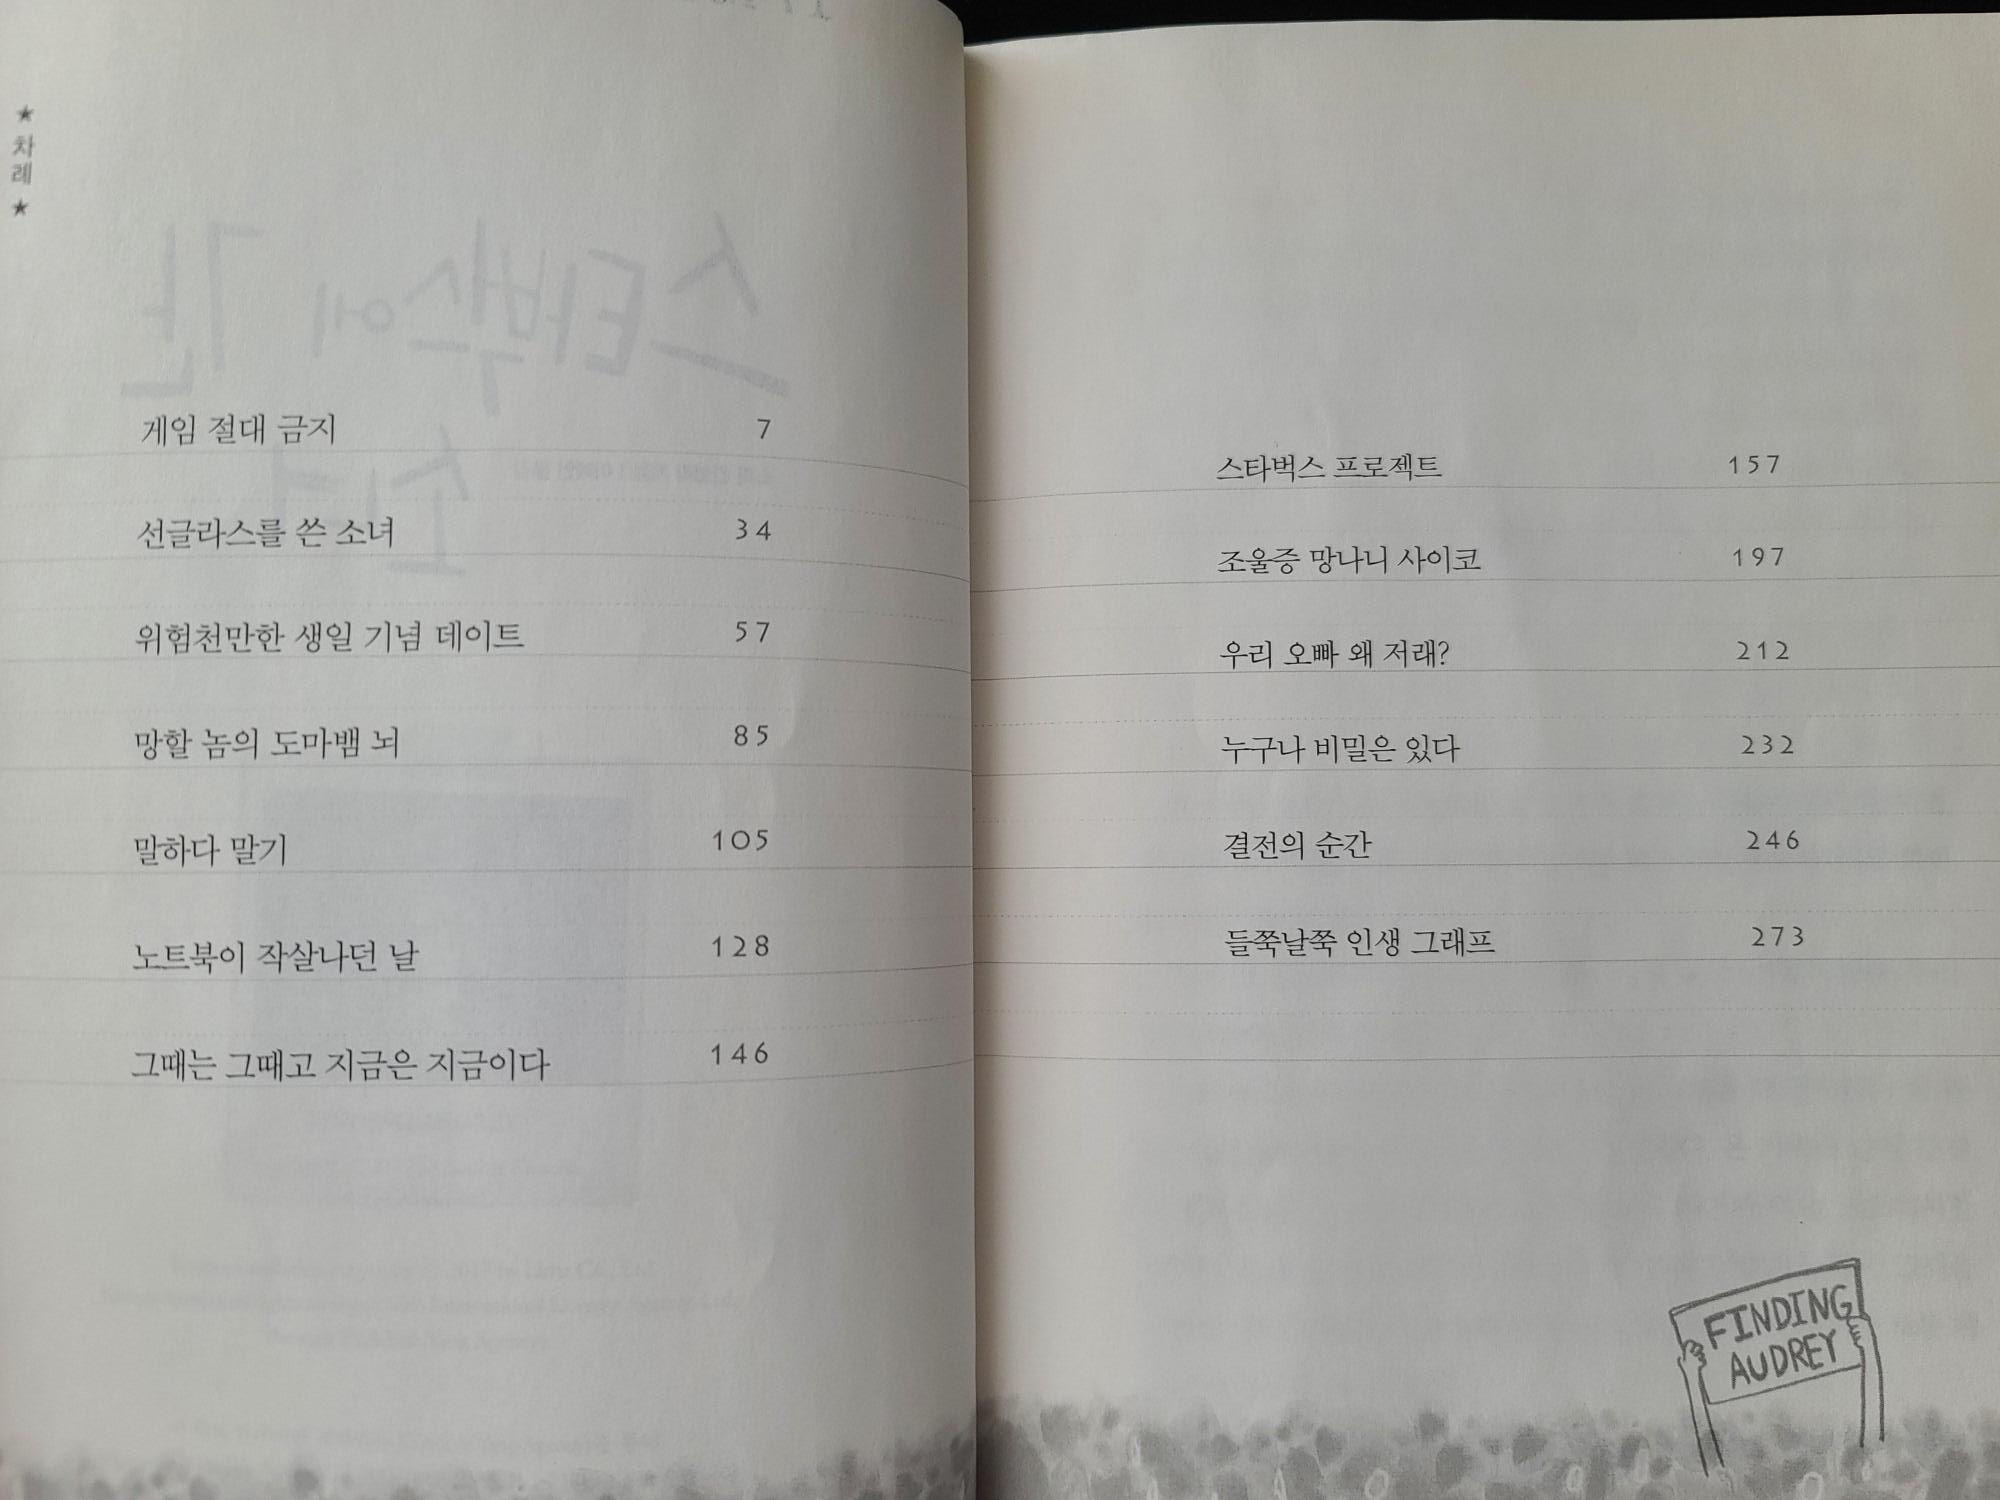 ★ 차례 ★
게임 절대 금지 7
선글라스를 쓴 소녀 34
위험천만한 생일 기념 데이트 57
망할 놈의 도마뱀 뇌 85
말하다 말기 105
노트북이 작살나던 날 128
그때는 그때고 지금은 지금이다 146
스타벅스 프로젝트 157
조울증 망나니 사이코 197
우리 오빠 왜 저래? 212
누구나 비밀은 있다 232
결전의 순간 246
들쭉날쭉 인생 그래프 273
FINDING
AUDREY
스타벅스에 간
소녀